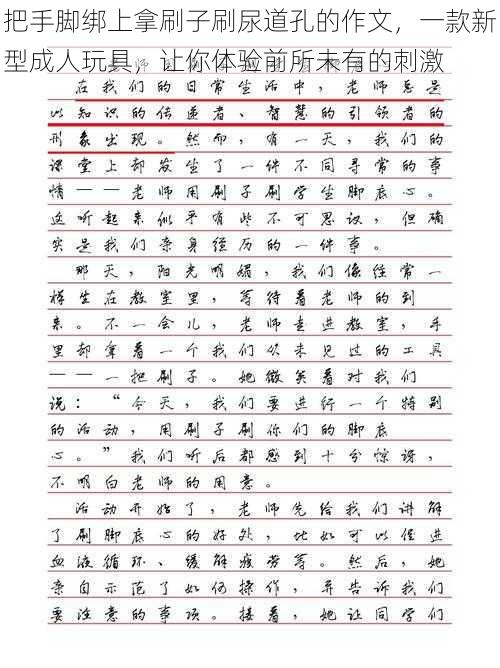 把手脚绑上拿刷子刷尿道孔的作文，一款新
型成人玩具，让你体验前所未有的刺激
在我们的日常生活中，老师总是
以知识的传递者、智慧的引领者的
形象出现。然而，有一天，我们的
课堂上却发生了一件不同寻常的事
情——老师用刷子刷学生脚底心。
这听起来似乎有些不可思议，但确
实是我们亲身经历的一件事。
那天，阳光明媚，我们像往常一
样坐在教室里，等待着老师的到
来。不一会儿，老师走进教室，手
里却拿着一个我们从未见过的工具
——一把刷子。她微笑着对我们
说：“今天，我们要进行一个特别
的活动，用刷子刷你们的脚底
心。”我们听后都感到十分惊讶，
不明白老师的用意。
活动开始了，老师先给我们讲解
了刷脚底心的好处，比如可以促进
血液循环、缓解疲劳等。然后，她
亲自示范了如何操作，并告诉我们
要注意的事项。接着，她让同学们